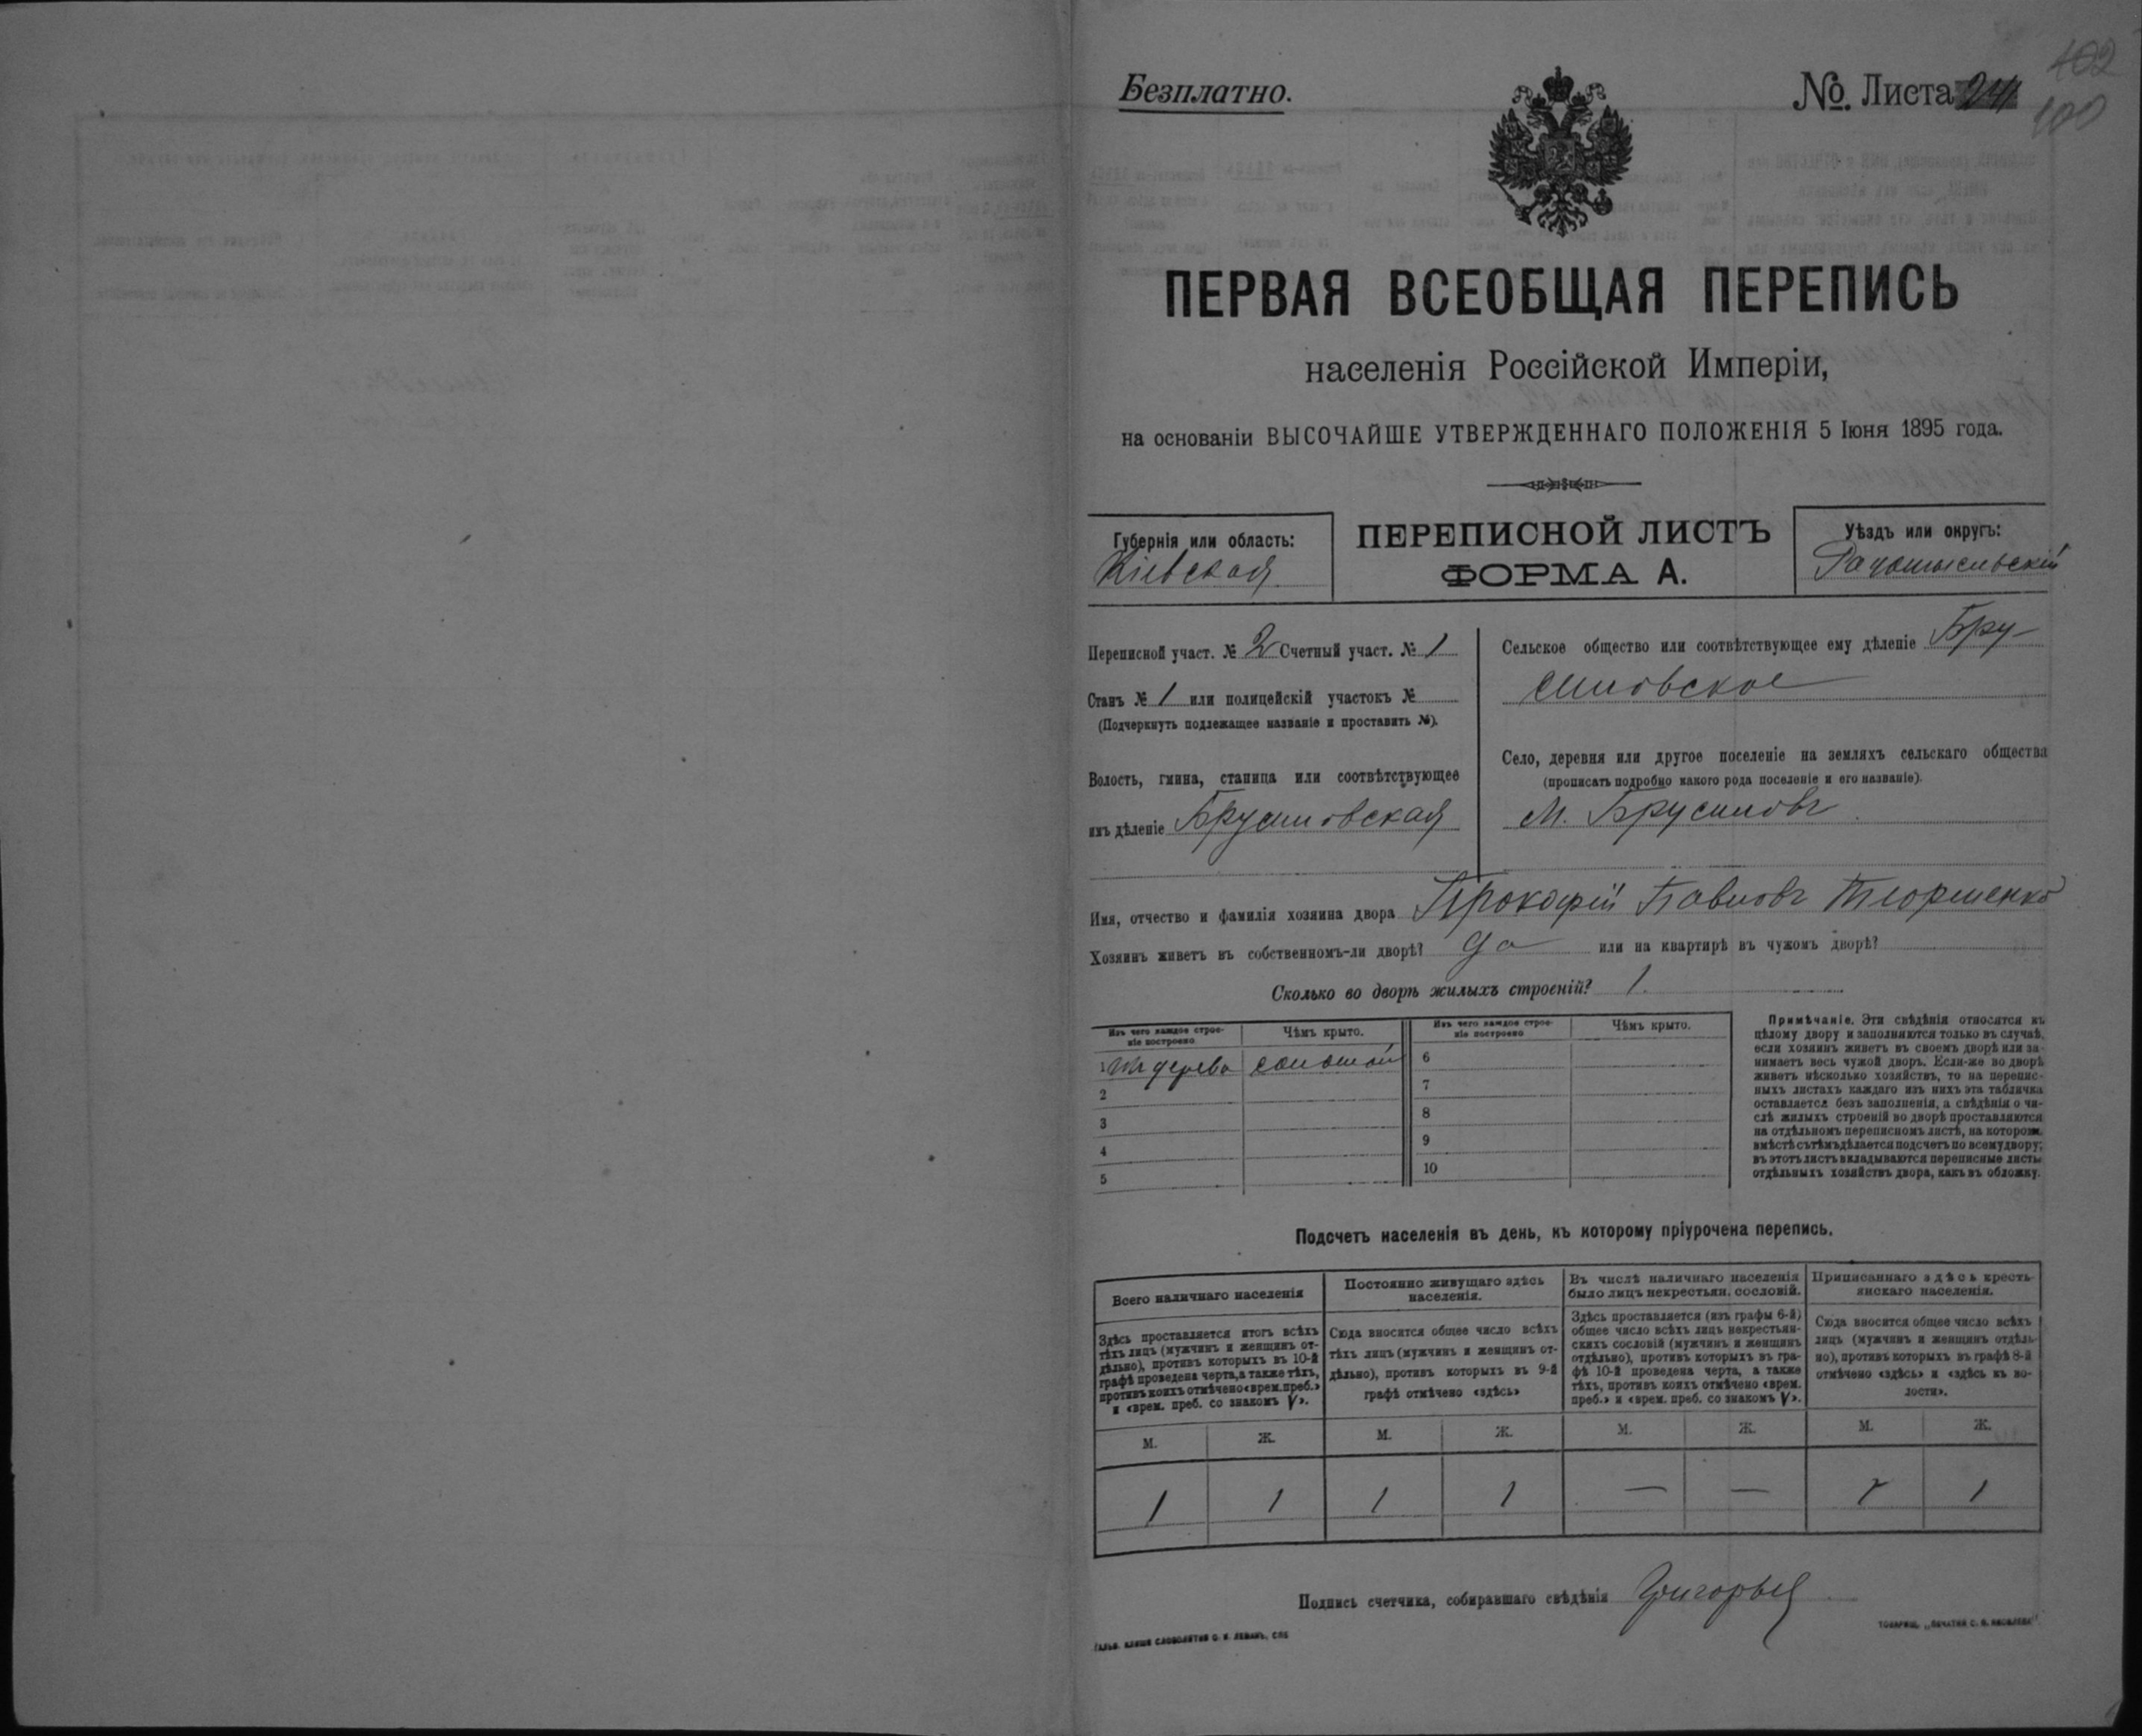 Безплатно.
№. Листа 24
402
100
ПЕРВАЯ ВСЕОБЩАЯ ПЕРЕПИСЬ
населенія Россійской Имперіи,
на основаніи ВЫСОЧАЙШЕ УТВЕРЖДЕННАГО ПОЛОЖЕНІЯ 5 Іюня 1895 года.
Губернія или область:
Кіевская
ПЕРЕПИСНОЙ ЛИСТЪ
ФОРМА А.
Уѣздъ или округъ:
Радомысльскій
Переписной участ. № 2 Счетный участ. № 1
Станъ № 1 или полицейскій участокъ №
(Подчеркнуть подлежащее названіе и проставить №).
Волость, гмина, станица или соотвѣтствующее
имъ дѣленіе Брусиловская
Сельское общество или соотвѣтствующее ему дѣленіе Бру-
силовское
Село, деревня или другое поселеніе на земляхъ сельскаго общества
(прописать подробно какого рода поселеніе и его названіе).
М. Брусиловъ
Имя, отчество и фамилія хозяина двора Прокофій Павловъ
Хозяинъ живетъ въ собственномъ-ли дворѣ? да или на квартирѣ въ чужомъ дворѣ?
Сколько во дворѣ жилыхъ строеній? 1.
Изъ чего каждое строе-
ніе построено
Чѣмъ крыто.
Изъ чего каждое строе-
ніе построено
Чѣмъ крыто.
1 изъ дерева соломой
2
3
4
5
6
7
8
9
10
Примѣчаніе. Эти свѣдѣнія относятся къ
цѣлому двору и заполняются только въ случаѣ,
если хозяинъ живетъ въ своемъ дворѣ или за-
нимаетъ весь чужой дворъ. Если-же во дворѣ
живетъ нѣсколько хозяйствъ, то на перепис-
ныхъ листахъ каждаго изъ нихъ эта табличка
оставляется безъ заполненія, а свѣдѣнія о чи-
слѣ жилыхъ строеній во дворѣ проставляются
на отдѣльномъ переписномъ листѣ, на которомъ
вмѣстѣ съ тѣмъ дѣлается подсчетъ по всему двору;
въ этотъ листъ вкладываются переписные листы
отдѣльныхъ хозяйствъ двора, какъ въ обложку.
Подсчетъ населенія въ день, къ которому пріурочена перепись.
Всего наличнаго населенія
Здѣсь проставляется итогъ всѣхъ
тѣхъ лицъ (мужчинъ и женщинъ от-
дѣльно), противъ которыхъ въ 10-й
графѣ проведена черта, а также тѣхъ,
противъ коихъ отмѣчено «врем. преб.»
и «врем. преб. со знакомъ V».
Постоянно живущаго здѣсь
населенія.
Сюда вносится общее число всѣхъ
тѣхъ лицъ (мужчинъ и женщинъ от-
дѣльно), противъ которыхъ въ 9-й
графѣ отмѣчено «здѣсь»
Въ числѣ наличнаго населенія
было лицъ некрестьян. сословій.
Здѣсь проставляется (изъ графы 6-й)
общее число всѣхъ лицъ некрестьян-
скихъ сословій (мужчинъ и женщинъ
отдѣльно), противъ которыхъ въ гра-
фѣ 10-й проведена черта, а также
тѣхъ, противъ коихъ отмѣчено «врем.
преб.» и «врем. преб. со знакомъ V».
Приписаннаго здѣсь кресть-
янскаго населенія.
Сюда вносится общее число всѣхъ
лицъ (мужчинъ и женщинъ отдѣль-
но), противъ которыхъ въ графѣ 8-й
отмѣчено «здѣсь» и «здѣсь въ во-
лости».
М. Ж. М. Ж. М. Ж. М. Ж.
1 1 1 1 — — 1 1
Подпись счетчика, собиравшаго свѣдѣнія
ГАЛЬВ. КЛИШЕ СЛОВОЛИТНИ О. И. ЛЕМАНЪ, СПБ
ТОВАРИЩ. „ПЕЧАТНЯ С. П. ЯКОВЛЕВА“.